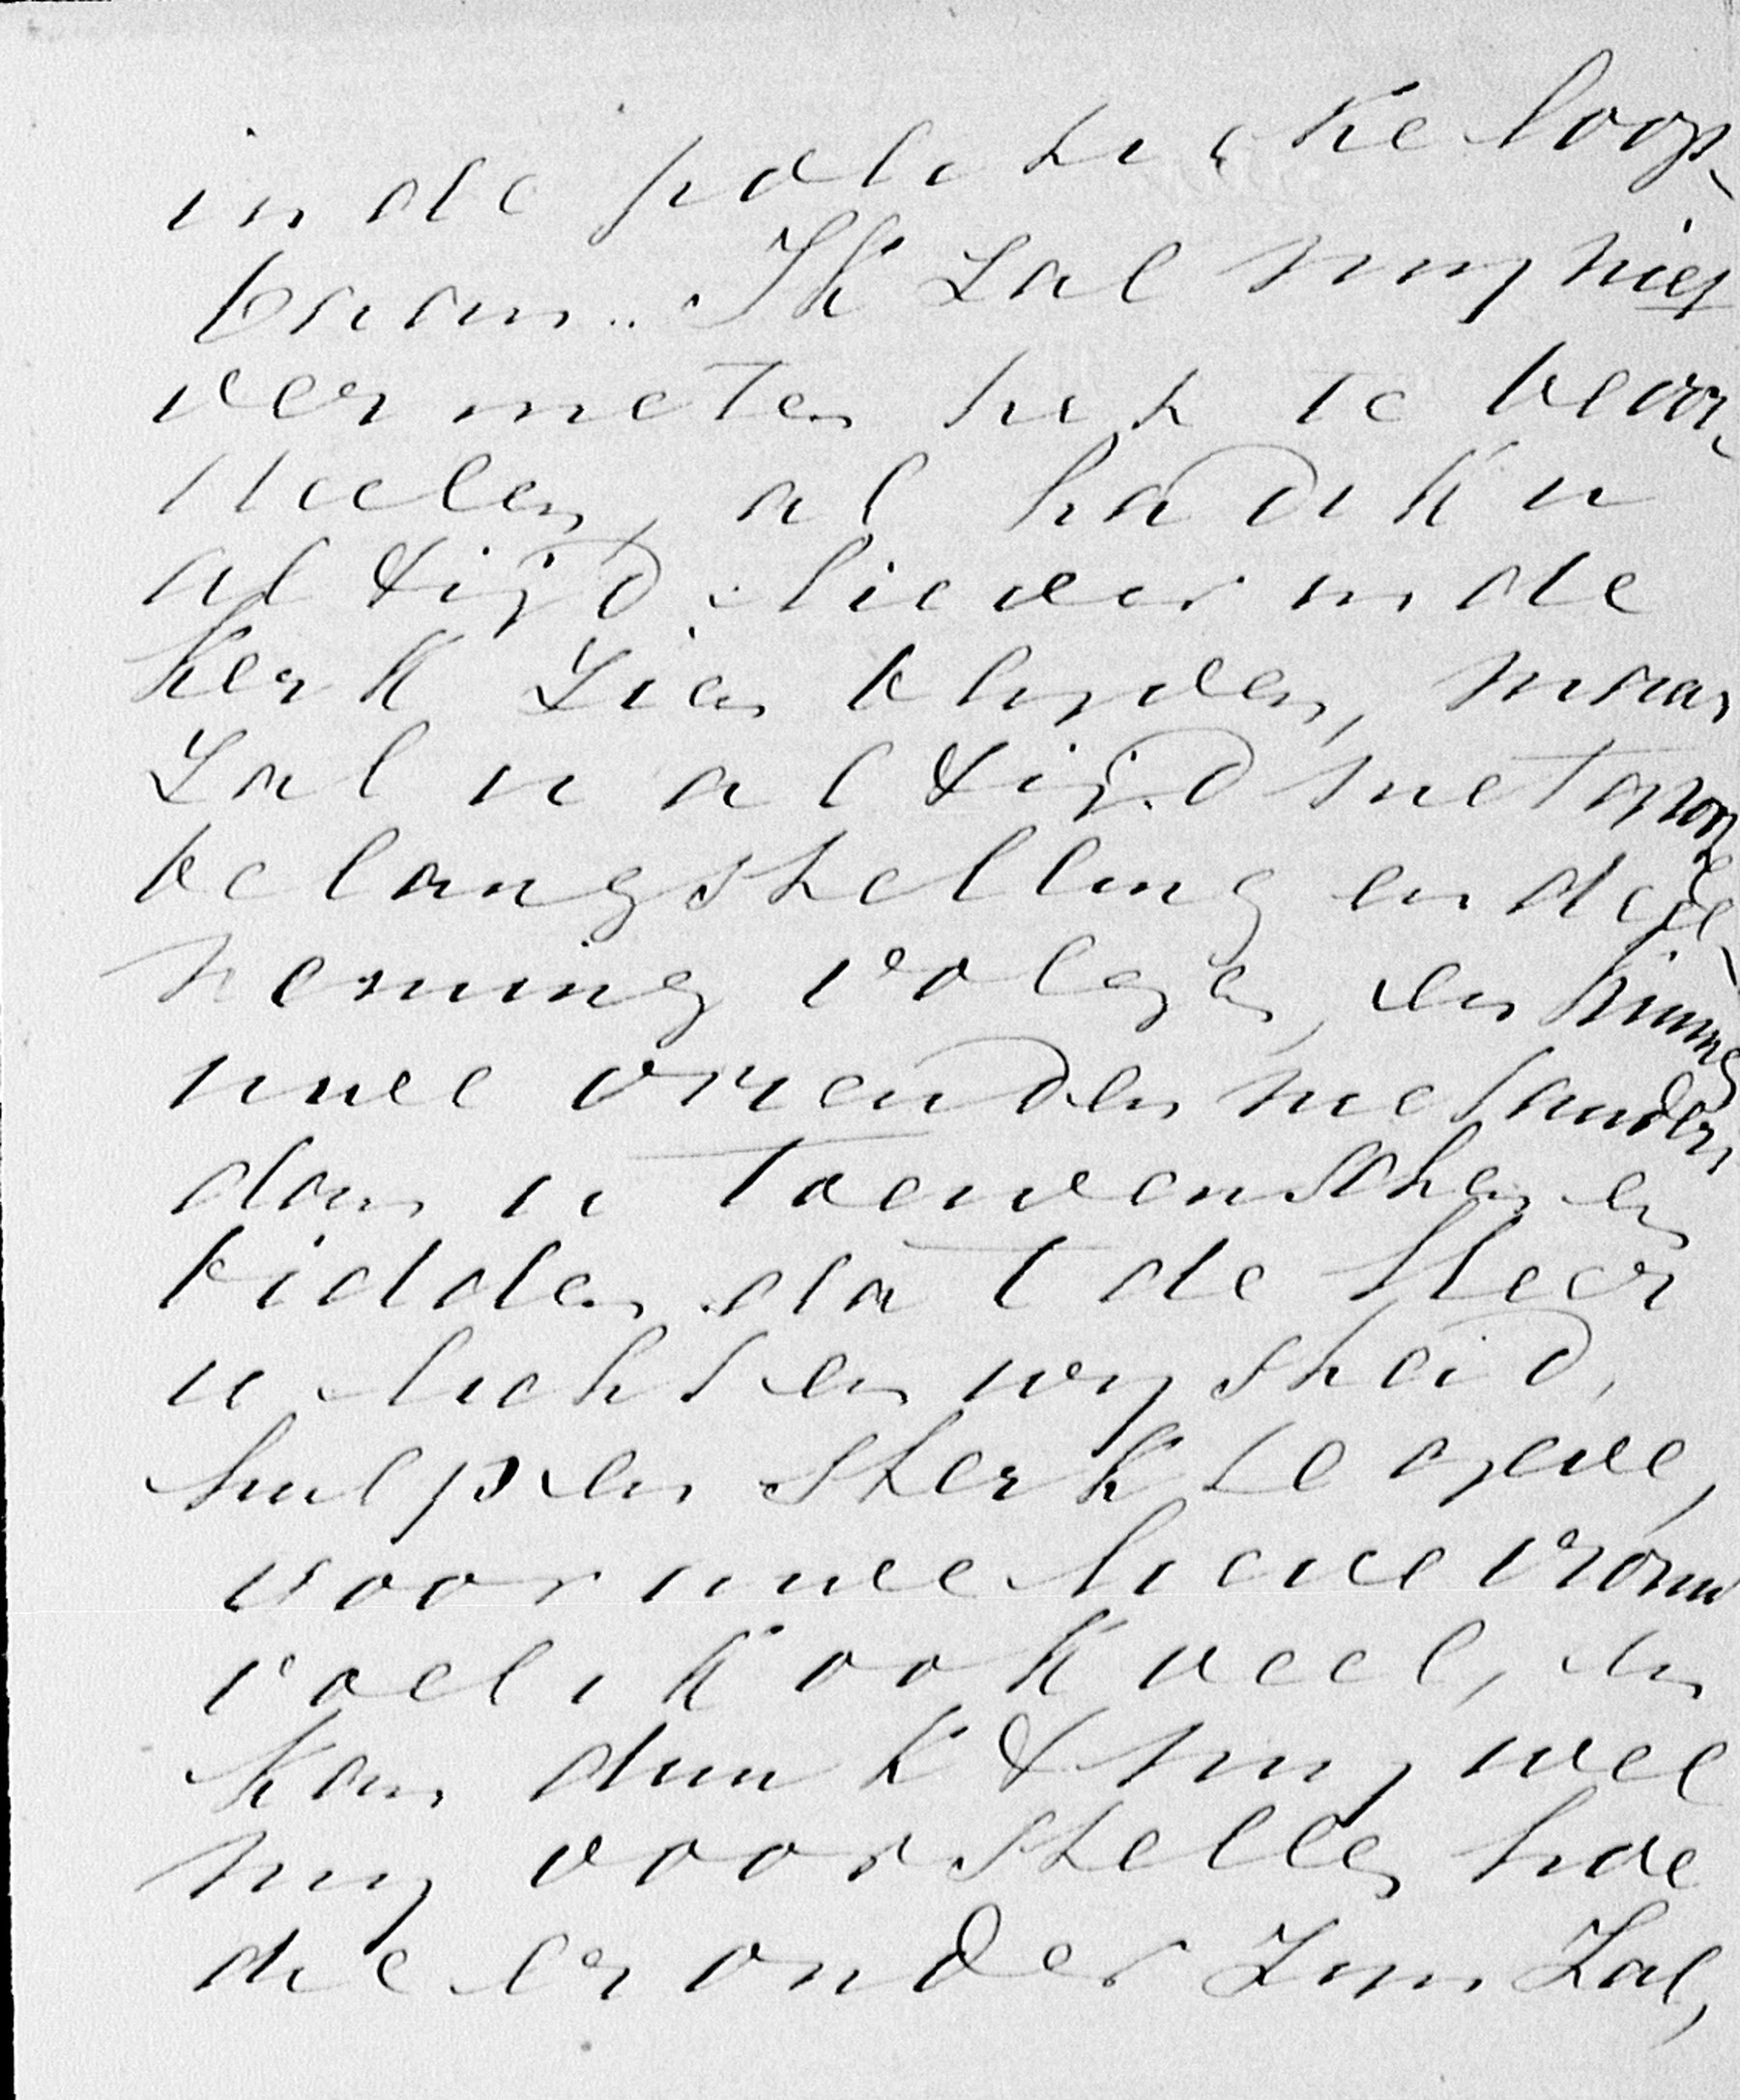 in de politieke loop-
baan.. Ik zal my niet
vermeten het te beoor-
deelen, al had ik u
altijd liever in de
Kerk zien blyven, maar
zal u altijd met groote
belangstelling en deel-
neming volgen, en kunnen
uwe vrienden niet anders
dan u toewenschen en
bidden dat de Heer
u licht en wysheid,
hulp en sterkte geve,
voor uwe lieve vrouw
voel ik ook veel, en
kan dunkt my wel
my voorstellen hoe
die er onder zyn zal,